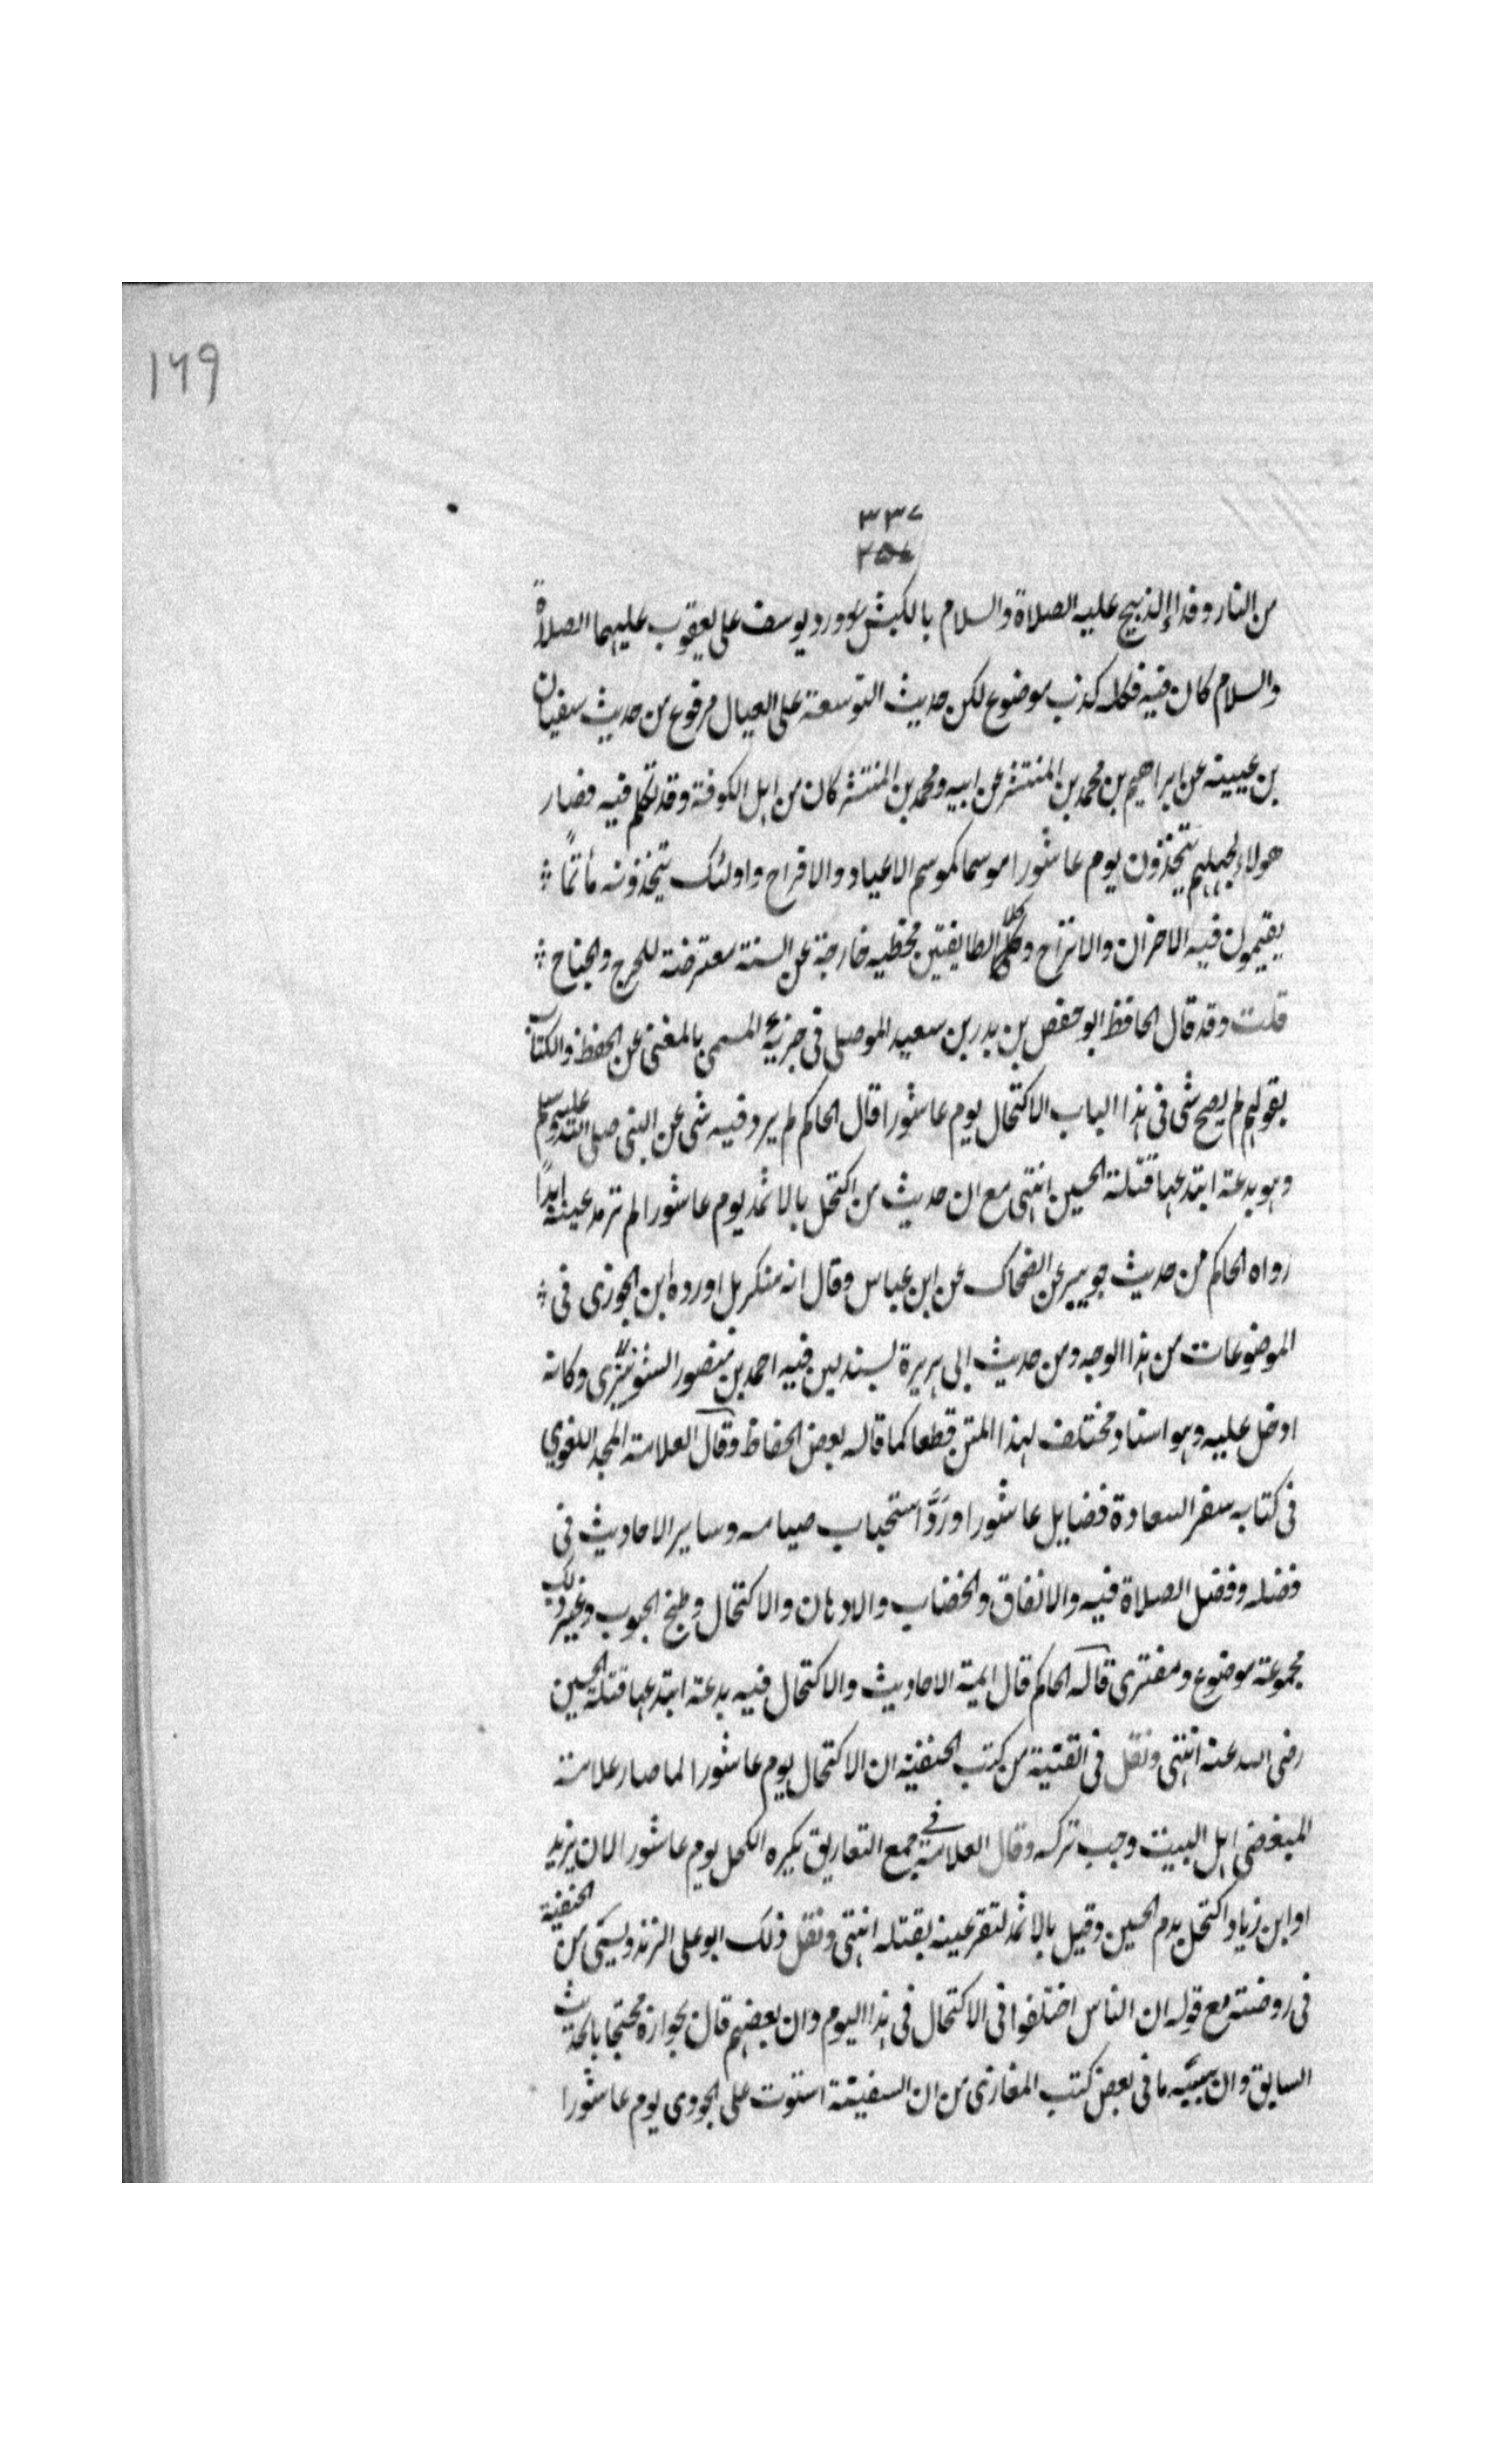 ١٦٩
٣٣٧
٢٥٤
من النار وفداء الذبيح عليه الصلاة والسلام بالكبش ورد يوسف على يعقوب عليهما الصلاة
والسلام كان فيه فكله كذب موضوع لكن حديث التوسعة على العيال مرفوع من حديث سفيان
بن عيينه عن ابراهيم بن محمد بن المنتشر عن ابيه ومحمد بن المنتشر كان من اهل الكوفة وقد تكلم فيه فصار
هولاء لجهلهم يتخذون يوم عاشورا موسما كموسم الاعياد والافراح واولئك يتخذونه مأتمًا
يقيمون فيه الاحزان والاتراح وكلا الطايفتين مخطيه خارجة عن السنة معترضة للحرج والجناح
قلت وقد قال الحافظ ابو حفص بن بدر بن سعيد الموصلى فى جزئه المسمى بالمغنى عن الحفظ والكتاب
بقولهم لم يصح شى فى هذا الباب الاكتحال يوم عاشورا قال الحاكم لم يرد فيه شى عن النبى صلى الله عليه وسلم
وهو بدعة ابتدعها قتلة الحسين انتهى مع ان حديث من اكتحل بالاثمد يوم عاشورا لم ترمد عينه ابدًا
رواه الحاكم من حديث جويبر عن الضحاك عن ابن عباس وقال انه منكر بل اورده ابن الجوزى فى
الموضوعات من هذا الوجه ومن حديث ابى هريرة بسند لين فيه احمد بن منصور الشونيزى وكانه
ادخل عليه وهو اسناد مختلف لهذا المتن قطعا كما قاله بعض الحفاظ وقال العلامة المجد اللغوي
فى كتابه سفر السعادة فضايل عاشورا ورَدَّ استحباب صيامه وساير الاحاديث فى
فضله وفضل الصلاة فيه والانفاق والخضاب والادهان والاكتحال وطبخ الحبوب وغير ذلك
مجموعة موضوع ومفترى قاله الحاكم قال ايمة الاحاديث والاكتحال فيه بدعة ابتدعها قتلة الحسين
رضى الله عنه انتهى ونقل فى القنية من كتب الحنفية ان الاكتحال يوم عاشورا لما صار علامة
لمبغضى اهل البيت وجب تركه وقال العلامة فى جمع التعاريق يكره الكحل يوم عاشورا لان يزيد
او ابن زياد اكتحل بدم الحسين وقيل بالاثمد لتقر عينه بقتله انتهى ونقل ذلك ابو على الزندويستى من الحنفية
فى روضته مع قوله ان الناس اختلفوا فى الاكتحال فى هذا اليوم وان بعضهم قال بجوازه محتجا بالحديث
السابق وان سببه ما فى بعض كتب المغازى من ان السفينة استوت على الجودى يوم عاشورا